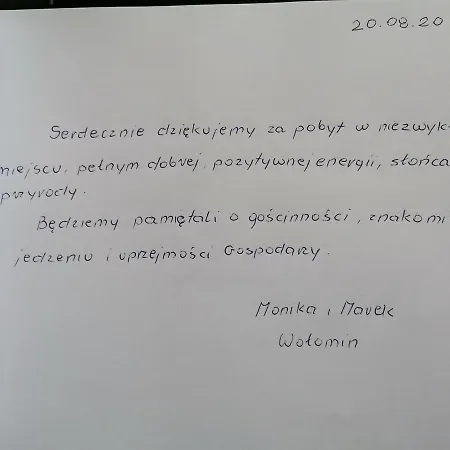 20.08.20
Serdecznie dziękujemy za pobyt w niezwyk
miejscu, pełnym dobrej, pozytywnej energii, słońca
przyrody.
Będziemy pamiętali o gościnności, znakomi
jedzeniu i uprzejmości Gospodarzy.
Monika i Marek
Wołomin